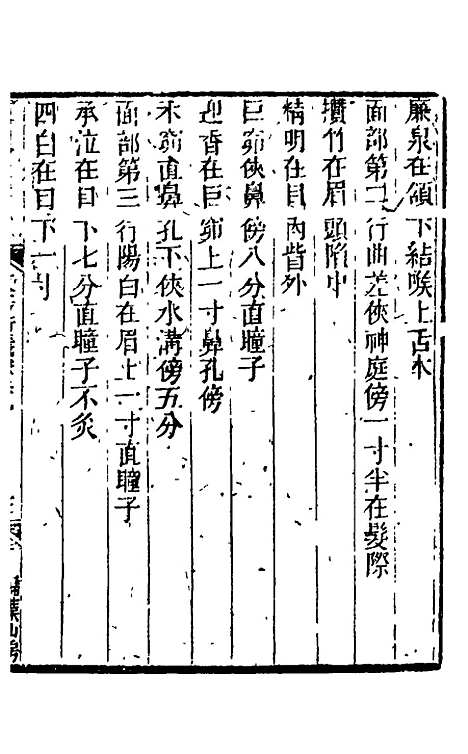 廉泉在頷下結喉上舌本
面部第二行曲差俠神庭傍一寸半在髮際
攢竹在眉頭陷中
睛明在目內眥外
巨窌俠鼻傍八分直瞳子
迎香在巨窌上一寸鼻孔傍
禾窌直鼻孔下俠水溝傍五分
面部第三行陽白在眉上一寸直瞳子
承泣在目下七分直瞳子不灸
四白在目下一寸
葉山房